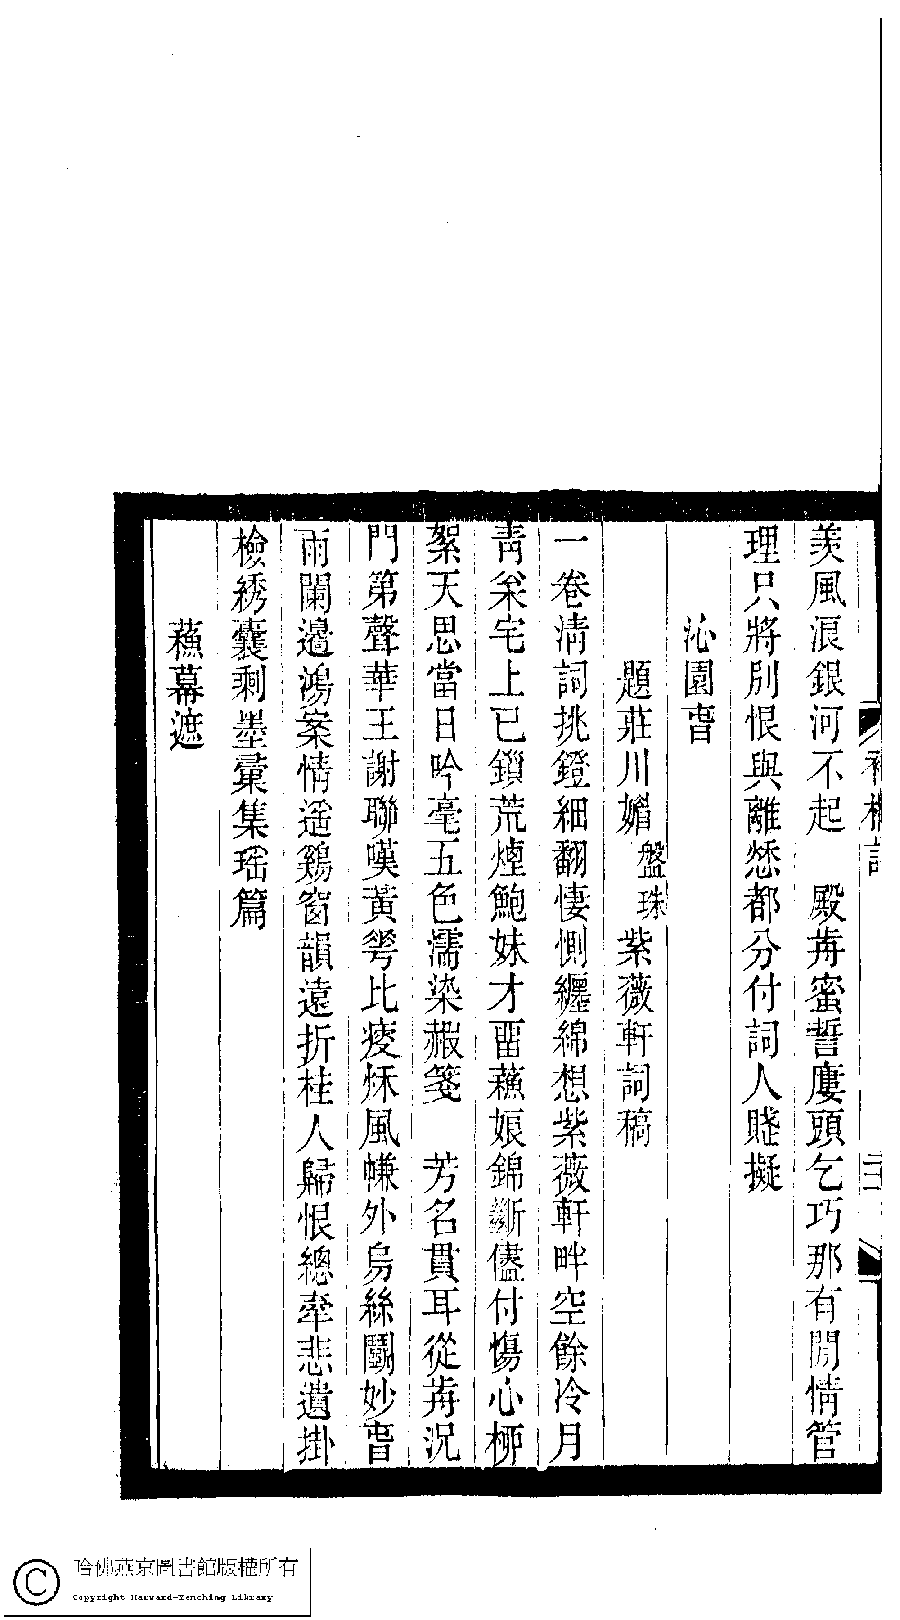 羨風浪銀河不起　殿歬蜜誓廔頭乞巧那有閒情管
理只將別恨與離愁都分付詞人賤擬
沁園旾
題莊川媘盤珠紫薇軒詞稿
一卷淸詞挑鐙細翻悽惻纏綿想紫薇軒畔空餘冷月
靑枀宅上已鎖荒煙鮑妹才畱蘓娘錦斷儘付傷心桺
絮天思當日吟毫五色濡染赮箋　芳名貫耳從歬況
門第聲華王謝聯嘆黃花比痩秌風㡘外烏絲鬭妙旾
雨闌邉鴻案情遥鷄窗韻遠折桂人歸恨總牽悲遺掛
檢綉囊剩墨彙集瑶篇
蘓幕遮
哈佛燕京圖書館版權所有
Copyright Harvard-Yenching Library